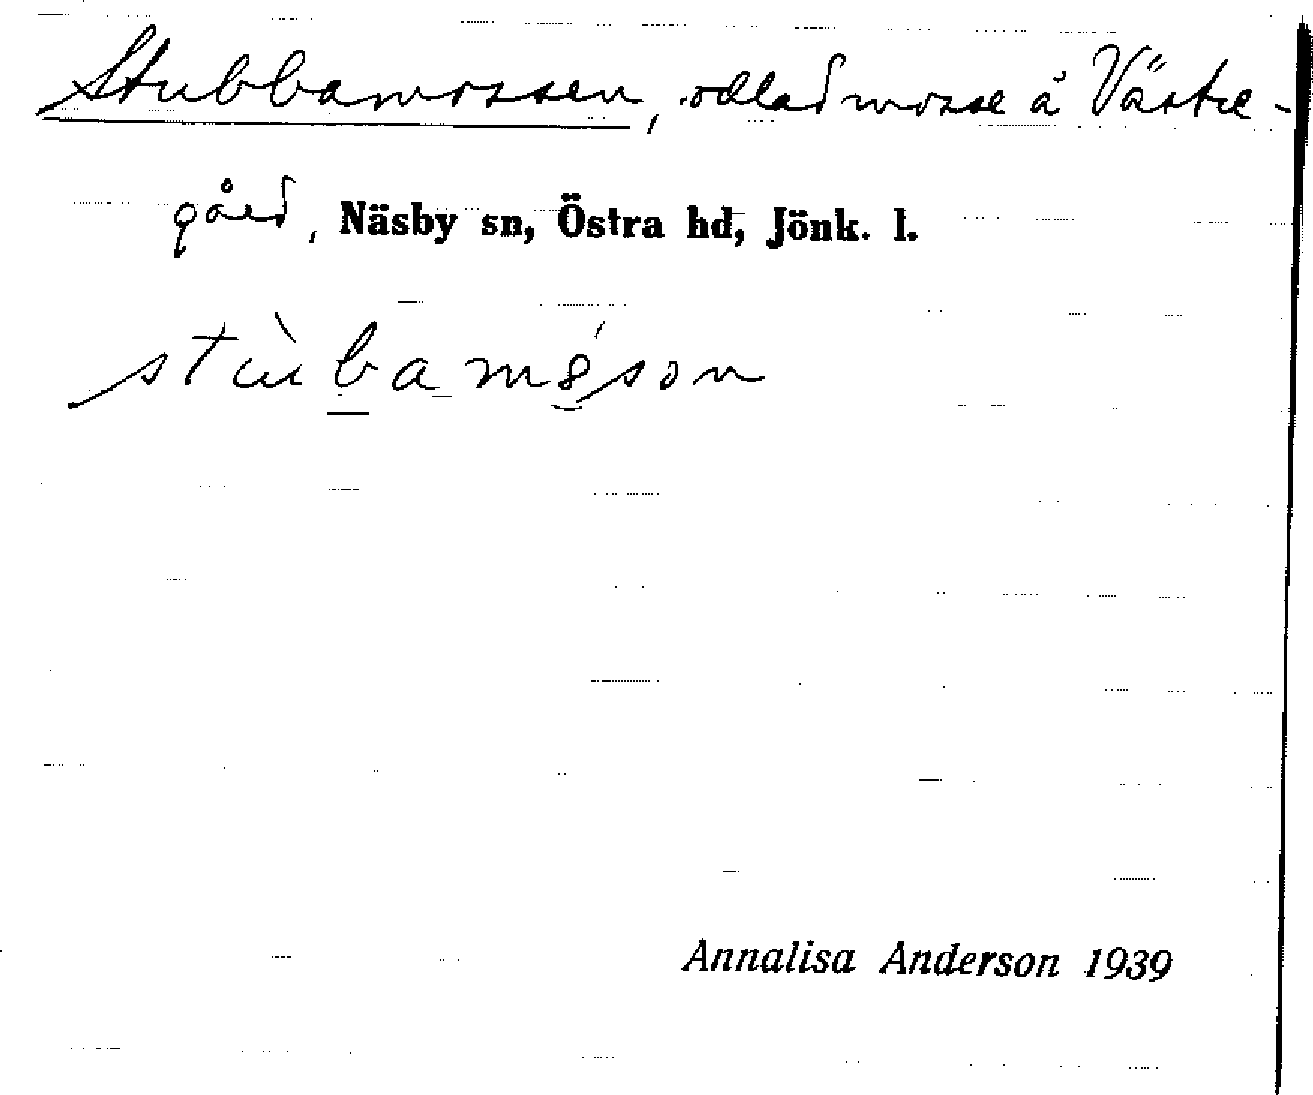 Stubbamossen, odlad mosse å Västre-
gård, Näsby sn, Östra hd, Jönk. l.
stùbamóson
Annalisa Anderson 1939